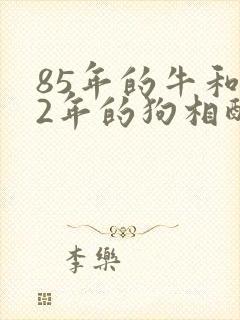 85年的牛和
2年的狗相
李樂